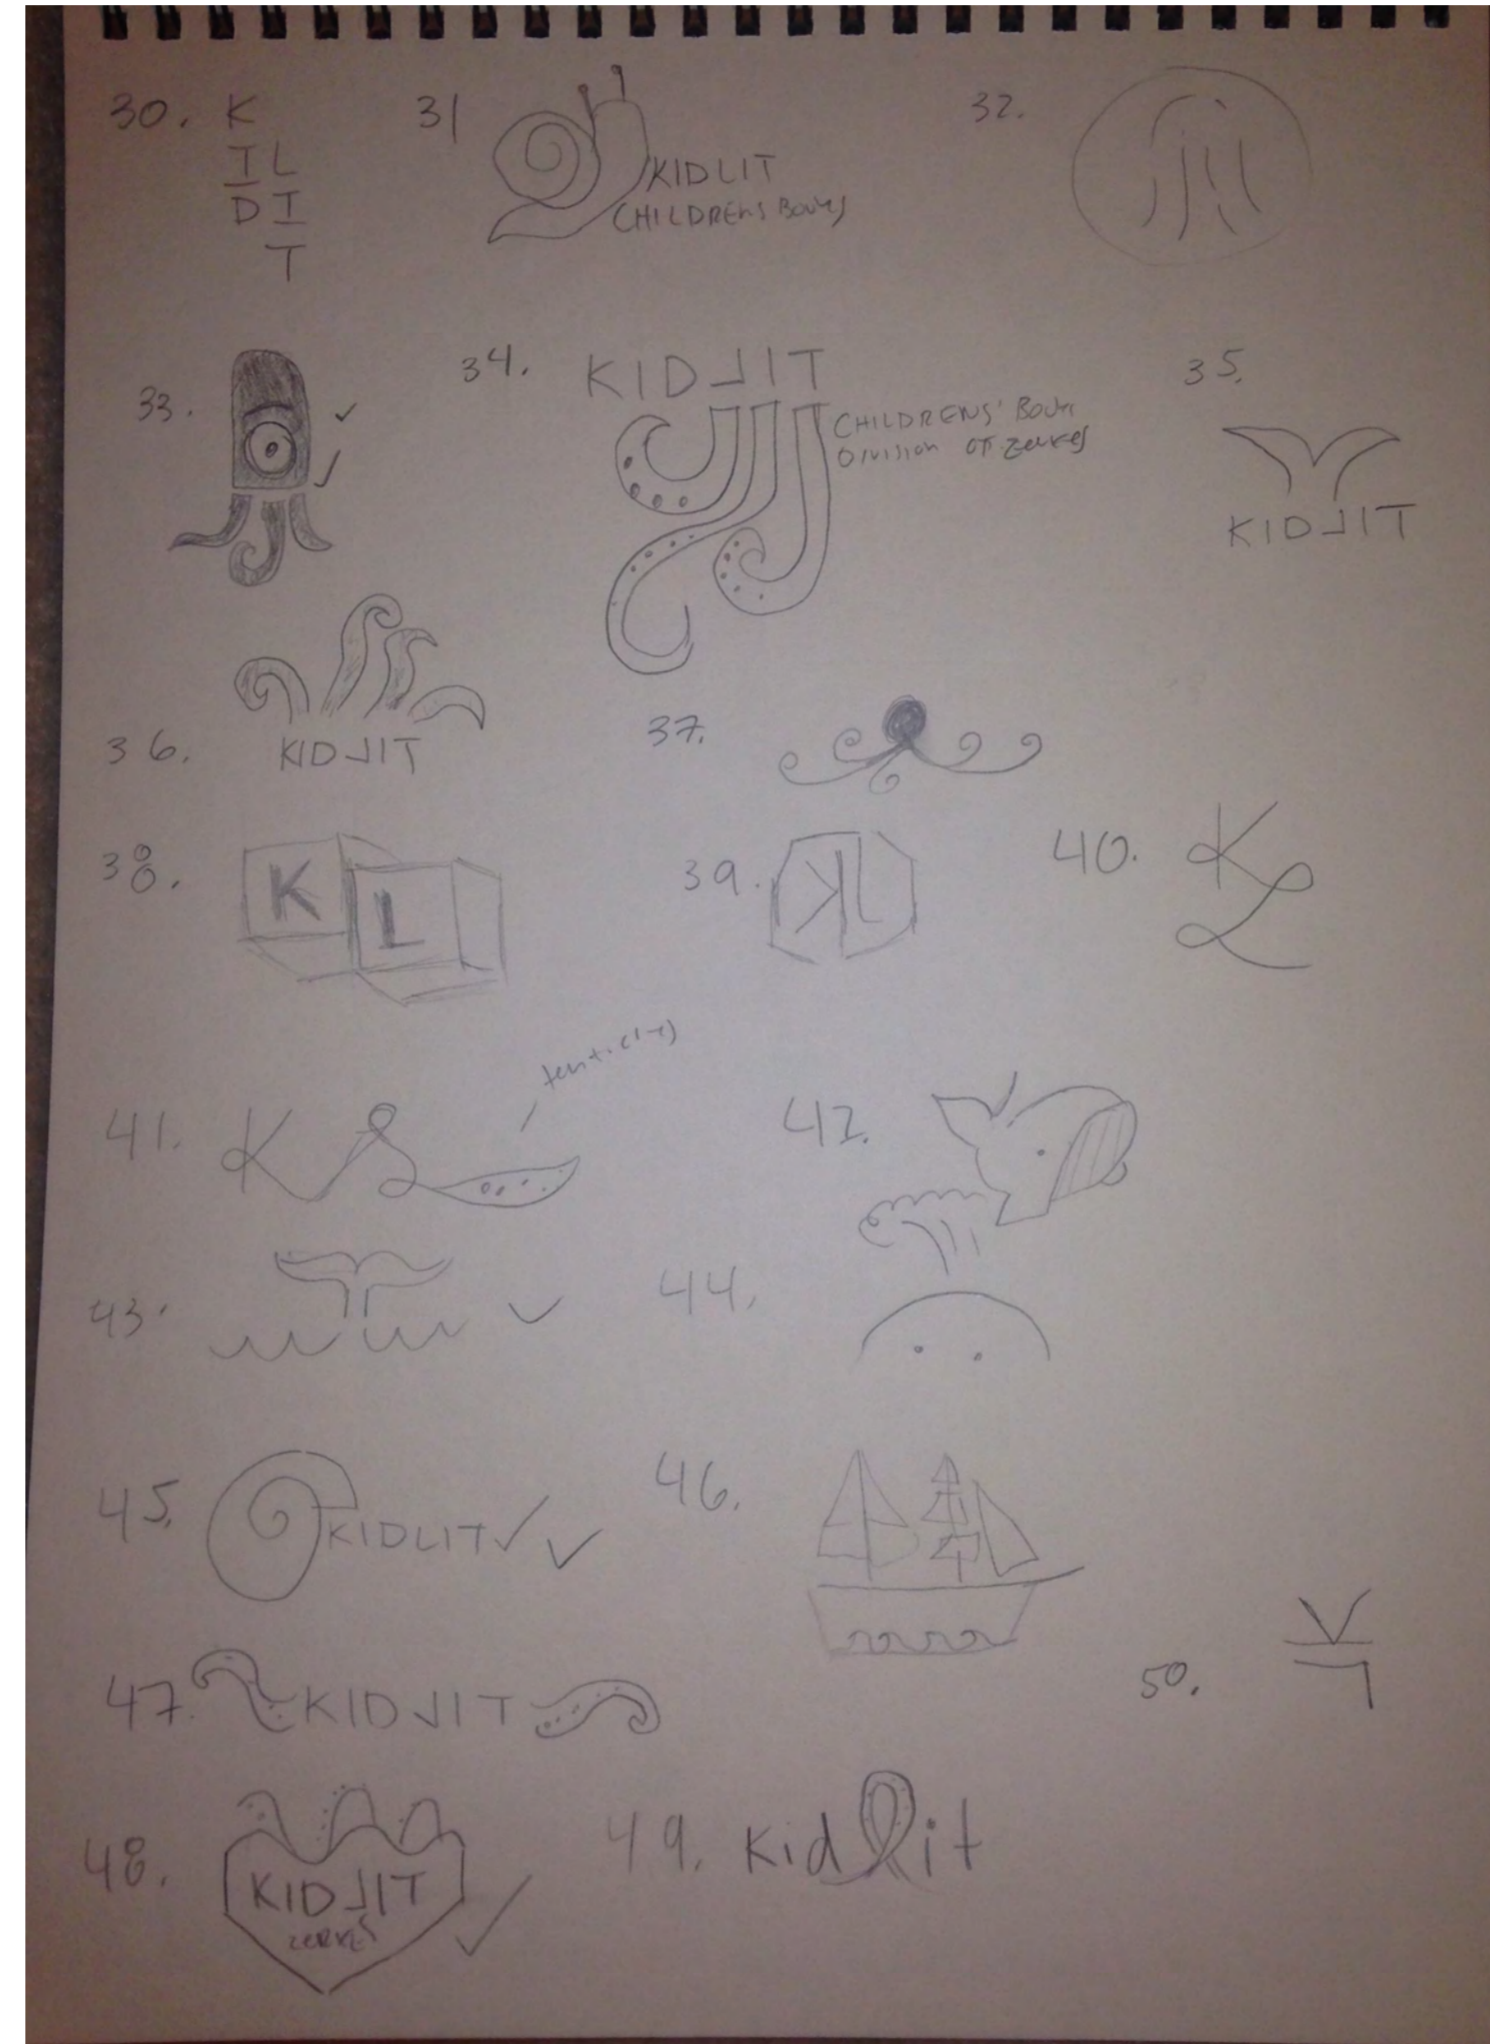 30. K
I L
D I
T
31
KIDLIT
CHILDRENS BOOKS
32.
33.
34. KIDLIT
CHILDRENS' BOOK
DIVISION OF ZERKES
35.
KIDLIT
36.
KIDLIT
37.
38.
K L
39.
KL
40. K
L
tenticles
41. K L
42.
43.
44.
45.
KIDLIT
46.
47. KIDLIT
50.
48.
KIDLIT
ZERKES
49. kidlit